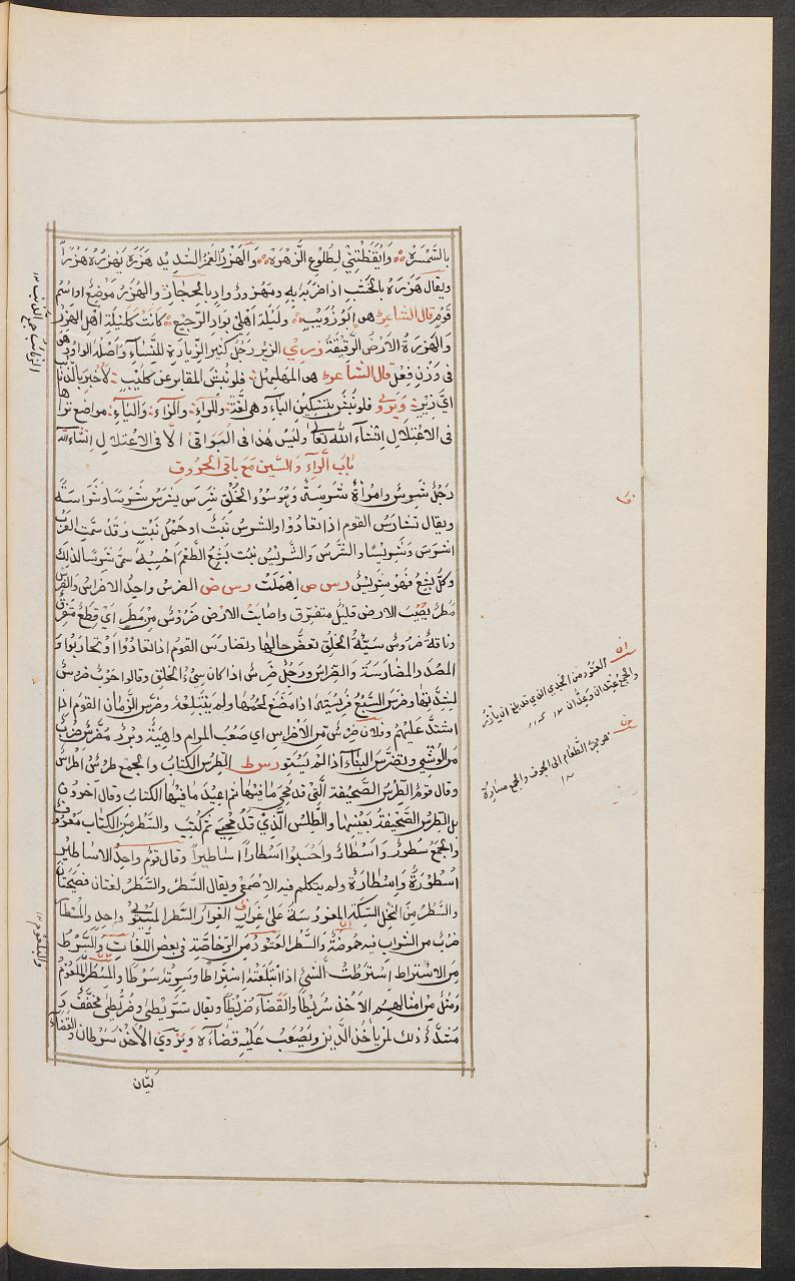 بالسَّمْسَرَه وَاَيْقَظَتْنِي لِطُلُوعِ الزُّهَرَه وَالهَزْرُ الغَمْزُ الشديد هَزَرَهُ يَهْزِرُهُ هَزْراً
ويقال هَزَرَهُ بالخَشَب اذا ضَرَبَه به ومَهْزورٌ وادٍ بالحِجاز والهُزَرُ مَوْضِعٌ او اسْمُ
قَوْمٍ قال الشاعر هو ابو ذُوَيْبٍ وَلَيْلَة اَهْلِي بِوَادِ الرَّجِيْعِ كانَتْ كَلَيْلَةِ اَهْلِ الهُزَرْ
وَالهَزْرَةُ الاَرْضُ الرَّقِيقَةُ زرى الزير رَجُلٌ كثير الزِّيَارَةِ لِلنِّسَاءِ وَاَصْلُهُ الواو
فى وَزْنِ فِعْل قال الشاعر هو المهلهل فلو نُبِشَ المقابر عن كُلَيْبٍ لَاُخْبِرَ بِالذَّنَائِبِ
اَيَّ زِيْرِ وَيُرْوَى فلو نُبْشَ بتسكين البآء وهى لغة والواو والرآء والياء مواضع تراها
فى الاعتلال ان شآء الله تعالى وليس هذا فى البواقى الا فى الاعتلال ان شاء الله
باب الرآء والسين مع باقى الحروف
رَجُلٌ شَرِسٌ وامرأةٌ شَرِسَةٌ وَهُوَ سُوْءُ الخُلُقِ شَرِسَ يَشْرَسُ شَرَسًا وشَرَاسَةً
ويقال تشارَسَ القوم اذا تعادُوا والشرس نَبْتٌ او حَمْلُ نَبْتٍ وَقَدْ سَمَّتِ العَرَبُ
اشرسَ وَشَرِيْسًا والشَّرَسُ وَالشَّرِيْسُ نَبْت بَشِعُ الطَّعْمِ اَحْسِبُهُ سُمِّى شَرِيسًا لذلك
وكلُّ بَشِعٍ فَهُوَ شَرِيْسٌ رس ص اُهْمِلَتْ رس ض الضرس واحِدُ الاضراس وَالضِّرْسُ
مَطَرٌ يُصِيْبُ الارض قليلٌ متفرّق واصابَت الارْض ضُرُوْسٌ مِنْ مَطَرٍ اَىْ قِطَعٌ مُتَفَرِّقٌ
وناقةٌ ضَرُوسٌ سَيّئةُ الخُلُقِ تَعَضُّ حالِبَها وتضارَسَ القومُ اذا تعادَوْا اَوْ تحارَبُوْا وَ
المصدَر المُضارَسَة والضِّراسُ ورَجُلٌ ضَرِسٌ اذا كان سىّءَ الخُلُقِ وقالوا حَرْبٌ ضروسٌ
لِشِدَّتِها وضَرَسَ السَّبُعُ فَرِيْسَتَهُ اذا مَضَغَ لَحْمَها ولم يَبْتَلِعْهُ وضَرَّسَ الزَّمانُ القومَ اذا
اشتدَّ عليهم وفلان ضِرْسٌ من الاَضْراسِ اى صَعْبُ المَرامِ داهِيَةٌ وبُرْدٌ مُضَرَّسٌ ضَرْبٌ
مَن الوَشْىِ وتضرَّسَ البِنَاءُ اذا لَمْ يَسْتَوِ رس ط الطِّرْسُ الكتابُ والجمع طُروسٌ اطراسٌ
وقال قومٌ الطِّرْسُ الصَّحِيْفَة الَّتِى قَدْ مُحِىَ ما فيها ثم اُعِيْدَ ما فيها الكتاب وقال آخرون
بل الطِّرْسُ الصَّحِيْفَةُ بِعَيْنِها والطِّلْسُ الَّذِىْ قَدْ مُحِىَ ثُمَّ كُتِبَ والسَّطْرُ مِنَ الكتابِ مَعْرُوْفٌ
والجَمْعُ سُطورٌ وَاَسْطارٌ واَحْسِبُوا اَسْطاراً اساطيراً وقال قوم واحِدُ الاساطير
اُسْطُوْرَةٌ وَاِسْطارَةٌ ولم يتكلم فيه الاصمعى ويقال السَّطْرُ والسَّطَرُ لغتان فصيحتان
والسَّطْرُ مِنَ النَّخْلِ السِّكَّة المغروسَةُ عَلَى غِرَارٍ الغِرَارُ السَّطر المُسْتَوِى واحِد والمُسْطارُ
ضَرْبٌ من الشراب فيه حُمُوضَةٌ وَالسَّطْر العَتُوْدُ مِنَ المَعْزِ خاصَّة فى بعض اللغات وَالسَّرْطُ
مِنَ الاسْتِراط اسْتَرَطْتُ الشىء اذا ابْتَلَعْتَه اِسْتِراطًا وسَرِطْتُهُ سَرَطًا والمِسْرَطُ البُلْعُوْمُ
ومَثَلٌ من امثالهم الاَخْذُ سُرَّيْطًا والقَضَآءُ ضُرَّيْطًا ويقال سُرَّيْطَى وضُرَّيْطَى مخفَّفٌ وَ
مَشَدَّدٌ ذلك لمن يأخُذُ الدَّيْن ويَصْعُبُ عَلَيْهِ قَضَآءُه وَيُرْوَى الاَخْذُ سَرَطَانٌ والقضآء
لَيَّان
والبلعوم
اى العَتُوْدُ من الجَدْي الذى قد بلغ
والجمع عِتْدان وعِدَّان
هو مجرى الطَّعام الى الجوف والجمع مسارط